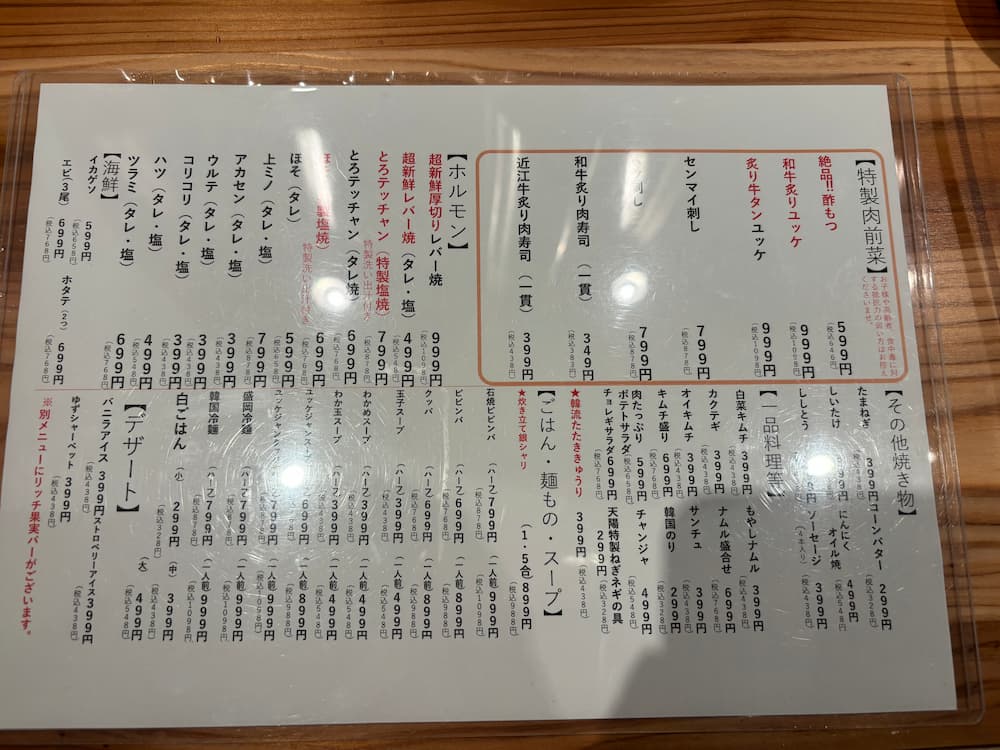 【特製肉前菜】
お子様や高齢者、食中毒に対
する抵抗力の弱い方はお控え
くださいませ。
絶品!!酢もつ 599円
(税込646円)
和牛炙りユッケ 999円
(税込1098円)
炙り牛タンユッケ 999円
(税込1098円)
センマイ刺 799円
(税込878円)
刺し 799円
(税込878円)
和牛炙り肉寿司(一貫) 349円
(税込383円)
近江牛炙り肉寿司(一貫) 399円
(税込438円)
【ホルモン】
超新鮮厚切りレバー焼 999円
(税込1098円)
超新鮮レバー焼(タレ・塩) 499円
(税込548円)
とろテッチャン(特製塩焼) 799円
特製洗い出汁付き
とろテッチャン(タレ焼) 699円
(税込768円)
製塩焼)
特製洗い出汁付き
ほそ(タレ) 599円
(税込658円)
上ミノ(タレ・塩) 799円
アカセン(タレ・塩) 399円
ウルテ(タレ・塩) 399円
(税込438円)
コリコリ(タレ・塩) 399円
(税込438円)
ハツ(タレ・塩) 499円
(税込548円)
ツラミ(タレ・塩) 699円
(税込768円)
【海鮮】
イカゲソ 599円
(税込658円)
エビ(3尾) 699円
(税込768円)
ホタテ(2つ) 699円
(税込768円)
【その他焼き物】
たまねぎ 399円
コーンバター 299円
(税込328円)
しいたけ
にんにく
オイル焼 499円
(税込548円)
ししとう
ソーセージ 399円
(4本入り)
(税込438円)
【一品料理等】
白菜キムチ 399円
(税込438円)
もやしナムル 399円
(税込438円)
カクテギ 399円
(税込438円)
ナムル盛合せ 699円
(税込768円)
オイキムチ 399円
(税込438円)
サンチュ 399円
(税込438円)
キムチ盛り 699円
(税込768円)
韓国のり 299円
(税込328円)
肉たっぷり
ポテトサラダ 599円
(税込658円)
チャンジャ 499円
(税込548円)
チョレギサラダ 699円
(税込768円)
天陽特製ねぎネギの具
299円
(税込328円)
★韓流たたききゅうり 399円
(税込438円)
【ごはん・麺もの・スープ】
★炊き立て銀シャリ (1・5合) 899円
(税込988円)
石焼ビビンバ (ハーフ) 799円
(税込878円)
(一人前) 999円
(税込1098円)
ビビンバ (ハーフ)
(一人前) 899円
(税込988円)
クッパ (ハーフ) 699円
(一人前) 899円
(税込988円)
玉子スープ (ハーフ) 399円
(税込438円)
(一人前) 499円
(税込548円)
わかめスープ (ハーフ) 399円
(税込438円)
(一人前) 499円
(税込548円)
わか玉スープ (ハーフ) 399円
(税込438円)
(一人前) 499円
(税込548円)
ユッケジャンスープ (ハーフ) 699円
(一人前) 899円
(税込988円)
ユッケジャン
(一人前) 999円
(税込1098円)
盛岡冷麺 (ハーフ) 799円
(税込878円)
(一人前) 999円
(税込1098円)
韓国冷麺 (ハーフ) 799円
(税込878円)
(一人前) 999円
(税込1098円)
白ごはん (小) 299円
(税込328円)
(中) 399円
(税込438円)
(大) 499円
(税込548円)
【デザート】
バニラアイス 399円
(税込438円)
ストロベリーアイス 399円
(税込438円)
ゆずシャーベット 399円
(税込438円)
※別メニューにリッチ果実バーがございます。